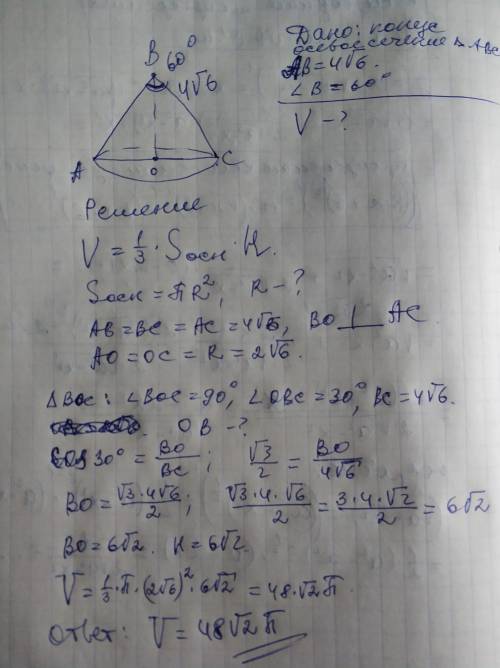 Дано: конус
осевое сечение Δ ABC
AB = 4√6.
∠B = 60°
V - ?
B 60°
4√6
A O C
Решение
V = 1/3 · Sосн · H.
Sосн = πR², R - ?
AB = BC = AC = 4√6, BO ⊥ AC.
AO = OC = R = 2√6.
ΔBOC: ∠BOC = 90°, ∠OBC = 30°, BC = 4√6.
OB - ?
cos 30° = BO/BC; √3/2 = BO/4√6
BO = √3·4√6/2; √3·4·√6/2 = 3·4·√2/2 = 6√2
BO = 6√2. H = 6√2.
V = 1/3 · π · (2√6)² · 6√2 = 48·√2π.
Ответ: V = 48√2π